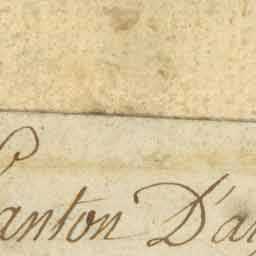 Canton D'a